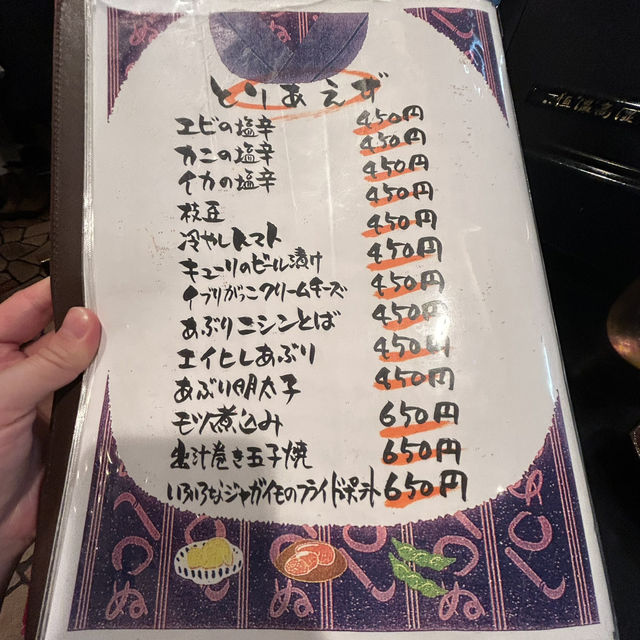 とりあえず
エビの塩辛 450円
カニの塩辛 450円
イカの塩辛 450円
枝豆 450円
冷やしトマト 450円
キューリのビール漬け 450円
イブリがっこクリームチーズ 450円
あぶりニシンとば 450円
エイヒレあぶり 450円
あぶり明太子 450円
モツ煮込み 650円
出汁巻き玉子焼 650円
いろいろなジャガイモのフライドポテト 650円